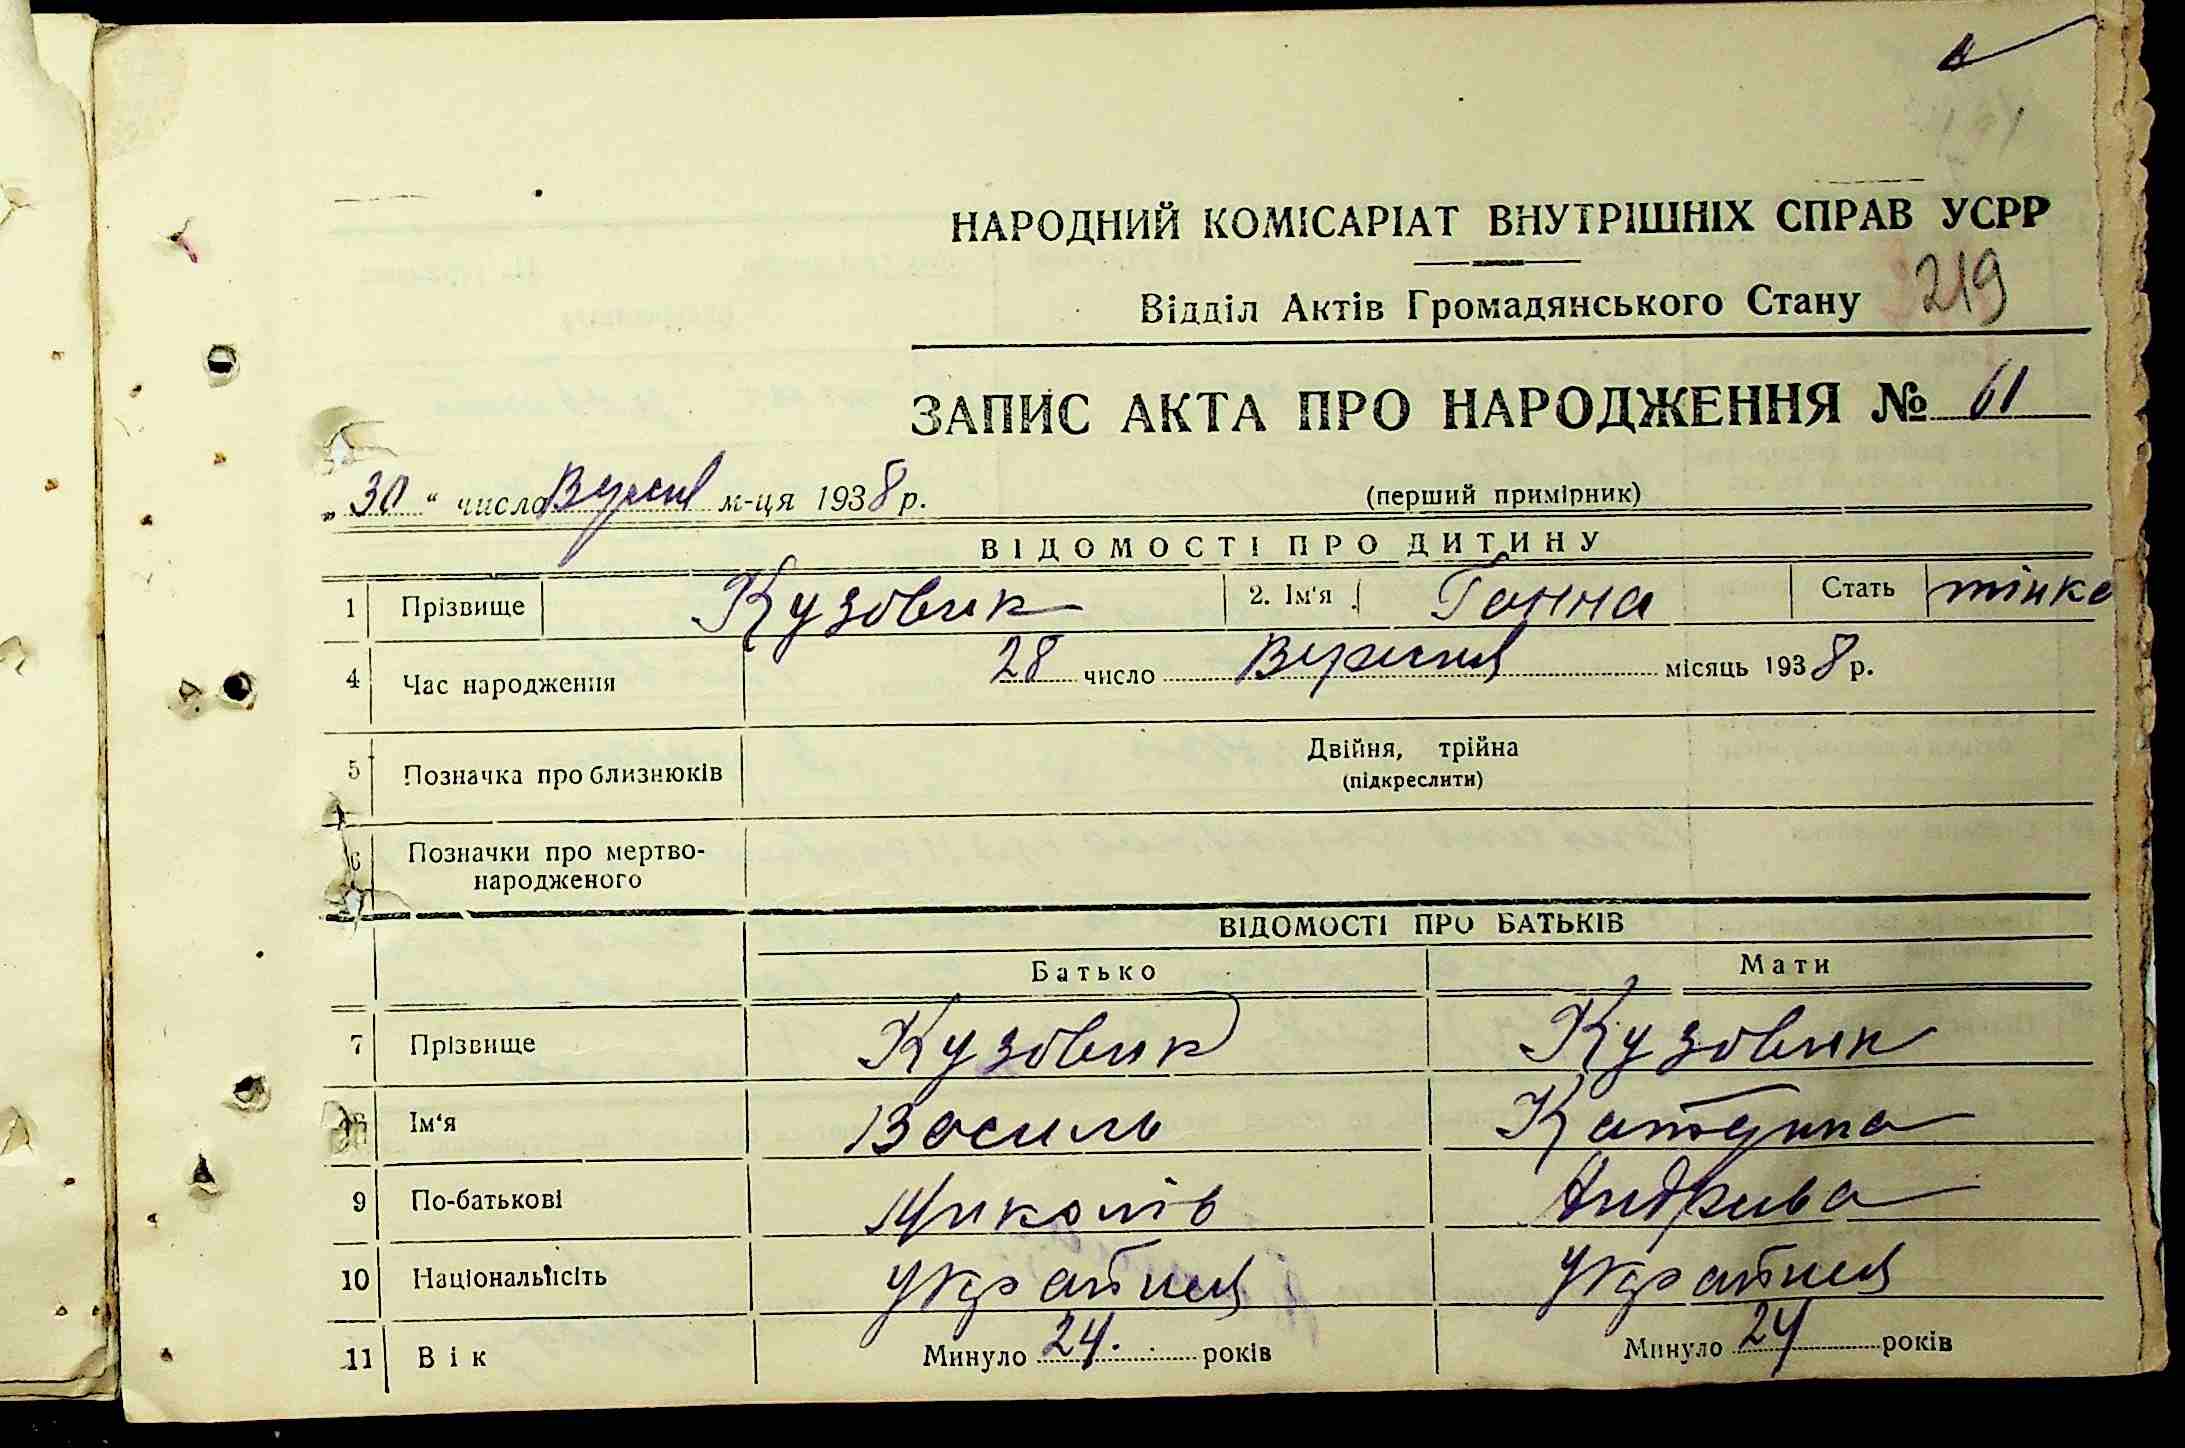 НАРОДНИЙ КОМІСАРІАТ ВНУТРІШНІХ СПРАВ УСРР
Відділ Актів Громадянського Стану 219
ЗАПИС АКТА ПРО НАРОДЖЕННЯ № 61
„30“ числа Вересня м-ця 1938 р. (перший примірник)
ВІДОМОСТІ ПРО ДИТИНУ
1 Прізвище Кузовик 2. Ім'я Ганна Стать жінка
4 Час народження 28 число Вересня місяць 1938 р.
5 Позначка про близнюків Двійня, трійна
(підкреслити)
6 Позначки про мертво-
народженого
ВІДОМОСТІ ПРО БАТЬКІВ
Батько Мати
7 Прізвище Кузовик Кузовик
Ім'я Василь Катерина
9 По-батькові Миколів Андрива
10 Національність
11 Вік Минуло 24. років Минуло 24 років